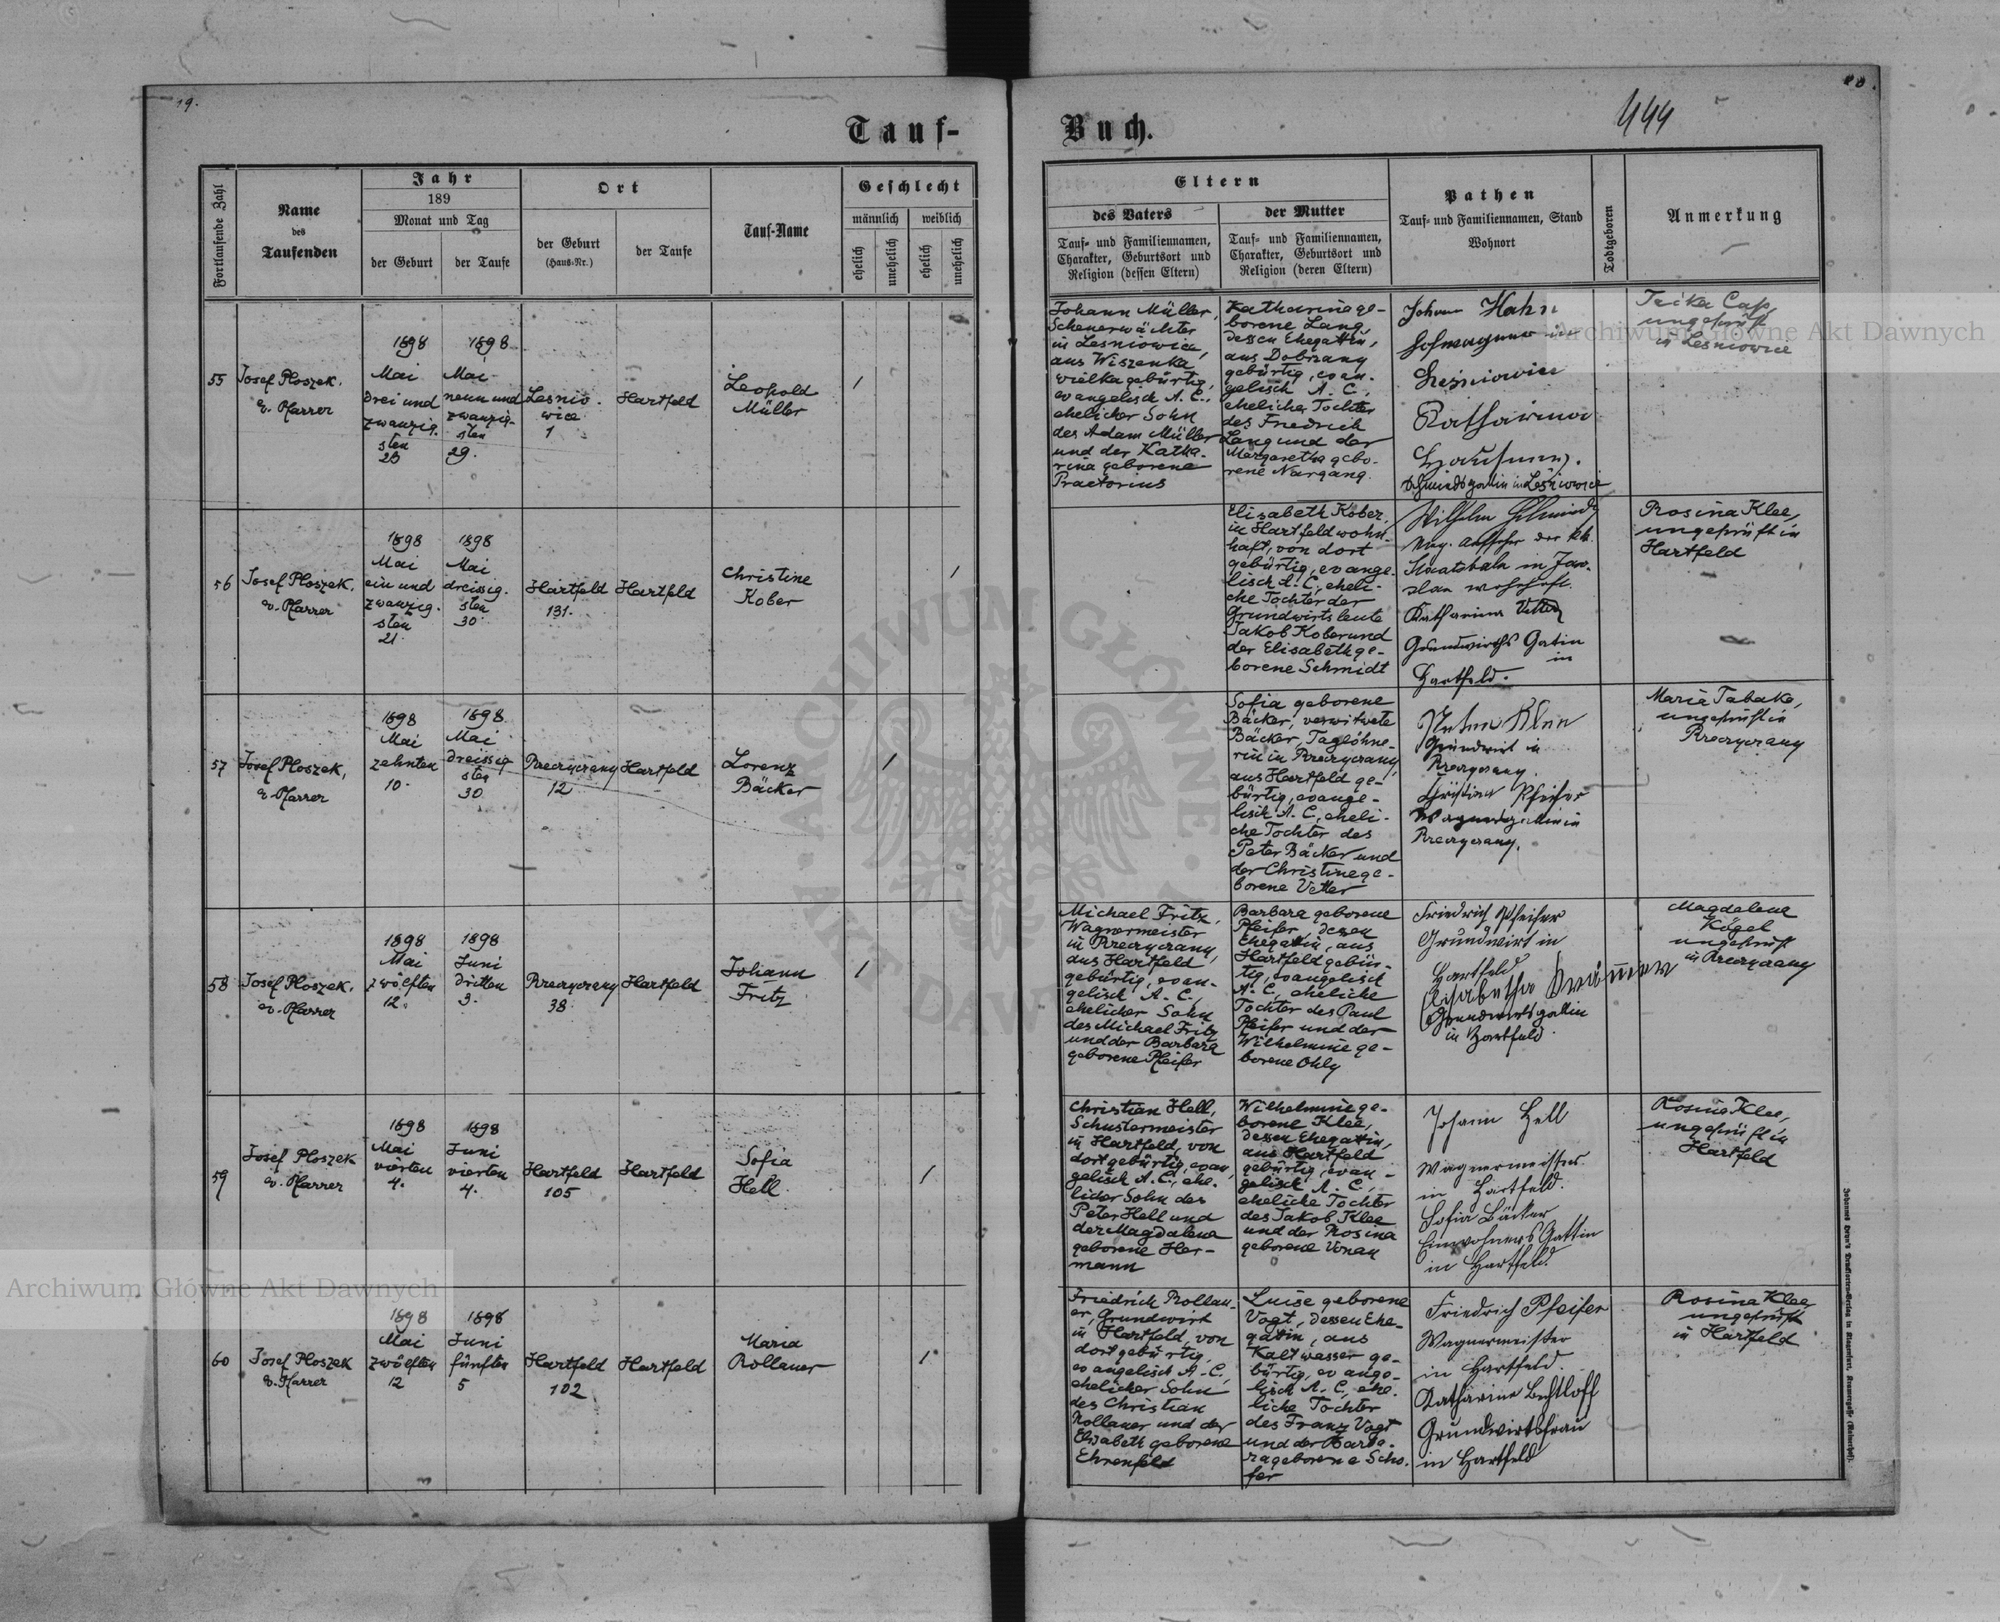 19.
80.
Tauf-
Buch.
444
Fortlaufende Zahl
Name
des
Taufenden
Jahr
189
Monat und Tag
der Geburt
der Taufe
Ort
der Geburt
(Haus-Nr.)
der Taufe
Tauf-Name
Geschlecht
männlich
weiblich
ehelich
unehelich
ehelich
unehelich
Eltern
des Vaters
Tauf- und Familiennamen,
Charakter, Geburtsort und
Religion (dessen Eltern)
der Mutter
Tauf- und Familiennamen,
Charakter, Geburtsort und
Religion (deren Eltern)
Pathen
Tauf- und Familiennamen, Stand
Wohnort
Todtgeboren
Anmerkung
55
Josef Ploszek,
ev. Pfarrer
1898
Mai
drei und
zwanzig-
sten
23
1898
Mai
neun und
zwanzig-
sten
29.
Lesnio-
wice
1
Hartfeld
Leopold
Müller
1
Johann Müller,
Scheuerwächter
in Lesniowice,
aus Wiszenka
wielka gebürtig,
evangelisch A. C.,
ehelicher Sohn
des Adam Müller
und der Katha-
rina geborene
Praetorius
Katharina ge-
borene Lang,
dessen Ehegattin,
aus Dobrzany
gebürtig, evan-
gelisch A. C.,
ehelicher Tochter
des Friedrich
Lang und der
Margaretha gebo-
rene Nargang.
Johann Hahn
Hofwagner in
Leśniowice
Katharina
Schmiedsgatin in Leśniowice
ungeprüft
in Lesniowice
56
Josef Ploszek,
ev. Pfarrer
1898
Mai
ein und
zwanzig-
sten
21.
1898
Mai
dreissig-
sten
30.
Hartfeld
131.
Hartfeld
Christine
Kober
1
Elisabeth Kober,
in Hartfeld wohn-
haft, von dort
gebürtig, evange-
lisch A. C., eheli-
che Tochter der
Grundwirtsleute
Jakob Kober und
der Elisabeth ge-
borene Schmidt
Wilhelm Schmied
Mag. Aufseher der kk.
Staatsbahn in Jaro-
slau wohnhaft.
Katharina Vetter
Grundwirths Gatin
in
Hartfeld.
Rosina Klee,
ungeprüft in
Hartfeld
57
Josef Ploszek,
ev. Pfarrer
1898
Mai
zehnten
10.
1898
Mai
dreissig
sten
30
Rzeczyczany
12
Hartfeld
Lorenz
Bäcker
1
Sofia geborene
Bäcker, verwitwete
Bäcker, Taglöhne-
rin in Rzeczyczany,
aus Hartfeld ge-
bürtig, evange-
lisch A. C., eheli-
che Tochter des
Peter Bäcker und
der Christine ge-
borene Vetter
Klee
Grundwirt in
Rzeczyczany.
Christina Pfeifer
Wagnersgattin in
Rzeczyczany.
Maria Tabaka,
ungeprüft in
Rzeczyczany
58
Josef Ploszek,
ev. Pfarrer
1898
Mai
zwölften
12.
1898
Juni
dritten
3.
Rzeczyczany
38.
Hartfeld
Johann
Fritz
1
Michael Fritz,
Wagnermeister
in Rzeczyczany,
aus Hartfeld
gebürtig, evan-
gelisch A. C.,
ehelicher Sohn
des Michael Fritz
und der Barbara
geborene Pfeifer
Barbara geborene
Pfeifer, dessen
Ehegattin, aus
Hartfeld gebür-
tig, evangelisch
A. C., eheliche
Tochter des Paul
Pfeifer und der
Wilhelmine ge-
borene Ohly
Friedrich Pfeifer
Grundwirt in
Hartfeld
Elisabetha
Grundwirtsgatin
in Hartfeld
Magdalena
Kögel
ungeprüft
in Rzeczyczany
59
Josef Ploszek
ev. Pfarrer
1898
Mai
vierten
4.
1898
Juni
vierten
4.
Hartfeld
105
Hartfeld
Sofia
Hell
1
Christian Hell,
Schustermeister
in Hartfeld, von
dort gebürtig, evan
gelisch A. C., ehe-
licher Sohn des
Peter Hell und
der Magdalena
geborene Her-
mann
Wilhelmine ge-
borene Klee,
dessen Ehegattin,
aus Hartfeld
gebürtig, evan-
gelisch A. C.,
eheliche Tochter
des Jakob Klee
und der Rosina
geborene Vonau
Johann Hell
Wagnermeister
in Hartfeld.
Sofia Bäcker
Einwohners Gattin
in Hartfeld.
Rosina Klee,
ungeprüft in
Hartfeld
60
Josef Ploszek
ev. Pfarrer
1898
Mai
zwölften
12
1898
Juni
fünften
5
Hartfeld
102
Hartfeld
Maria
Rollauer
1
Friedrich Rollau-
er, Grundwirt
in Hartfeld, von
dort gebürtig,
evangelisch A. C.,
ehelicher Sohn
des Christian
Rollauer und der
Elisabeth geborene
Ehrenfeld
Luise geborene
Vogt, dessen Ehe-
gattin, aus
Kaltwasser ge-
bürtig, evange-
lisch A. C., ehe-
liche Tochter
des Franz Vogt
und der Barba-
ra geborene Scho-
fer
Friedrich Pfeifer
Wagnermeister
in Hartfeld.
Katharine Bechtloff
Grundwirtsfrau
in Hartfeld
Rosina Klee,
ungeprüft
in Hartfeld
Archiwum Główne Akt Dawnych
Archiwum Główne Akt Dawnych
ARCHIWUM GŁÓWNE AKT DAWNYCH